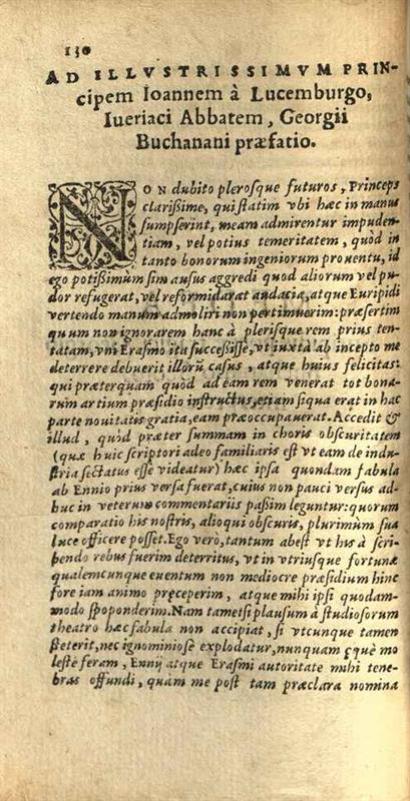 130
AD ILLVSTRISSIMVM PRIN-
cipem Ioannem à Lucemburgo,
Iueriaci Abbatem, Georgii
Buchanani præfatio.
NON dubito plerosque futuros, Princeps
clarißime, qui statim vbi hæc in manus
sumpserint, meam admirentur impuden-
tiam, vel potius temeritatem, quòd in
tanto bonorum ingeniorum prouentu, id
ego potißimum sim ausus aggredi quod aliorum vel pu-
dor refugerat, vel reformidarat audacia, atque Euripidi
vertendo manum admoliri non pertimuerim: præsertim
quum non ignorarem hanc à plerisque rem prius ten-
tatam, vni Erasmo ita successisse, vt iuxtà ab incepto me
deterrere debuerit illorū casus, atque huius felicitas:
qui præterquam quòd ad eam rem venerat tot bona-
rum artium præsidio instructus, etiam siqua erat in hac
parte nouitatis gratia, eam præoccupauerat. Accedit &
illud, quòd præter summam in choris obscuritatem
(quæ huic scriptori adeo familiaris est vt eam de indu-
stria sectatus esse videatur) hæc ipsa quondam fabula
ab Ennio prius versa fuerat, cuius non pauci versus ad-
huc in veterum commentariis paßim leguntur: quorum
comparatio his nostris, alioqui obscuris, plurimùm sua
luce officere posset. Ego verò, tantum abest vt his à scri-
bendo rebus fuerim deterritus, vt in vtriusque fortunæ
qualemcunque euentum non mediocre præsidium hinc
fore iam animo pręceperim, atque mihi ipsi quodam-
modo spoponderim. Nam tametsi plausum à studiosorum
theatro hæc fabula non accipiat, si vtcunque tamen
steterit, nec ignominiosè explodatur, nunquam ęquè mo
lestè feram, Ennij atque Erasmi autoritate mihi tene-
bras offundi, quàm me post tam præclara nomina